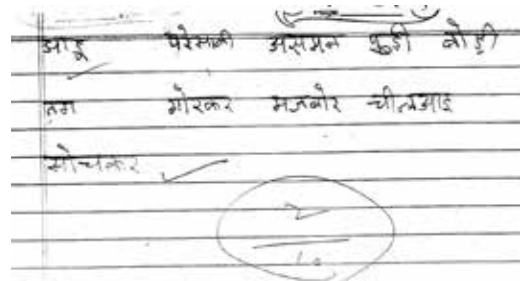 आडू परेसानी असमन फुडी बोड़ी
तग गोरकर मजबोर चील्आइ
सोचकर
2
10